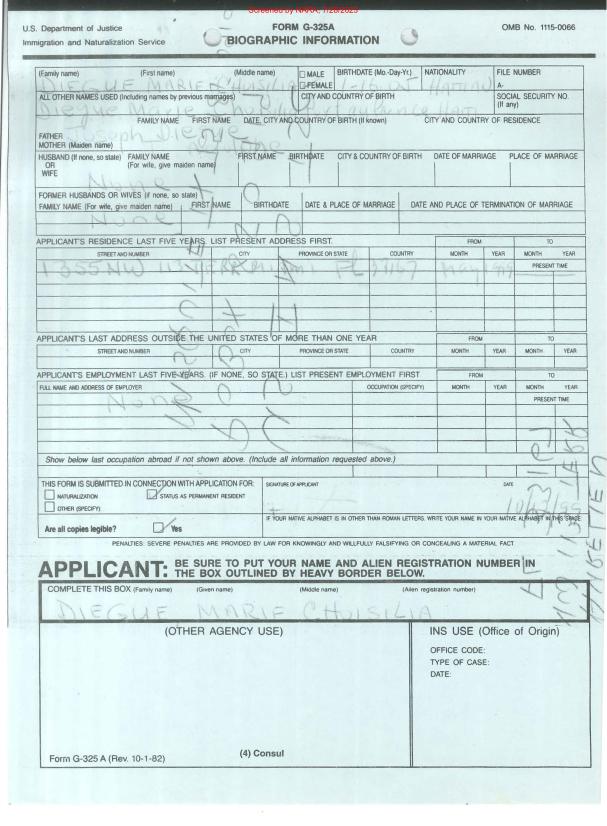 Screened by NARA, 7/28/2023
U.S. Department of Justice
Immigration and Naturalization Service
FORM G-325A
BIOGRAPHIC INFORMATION
OMB No. 1115-0066
(Family name) (First name) (Middle name) MALE FEMALE BIRTHDATE (Mo.-Day-Yr.) NATIONALITY FILE NUMBER A-
DIEGUE MARIE
ALL OTHER NAMES USED (Including names by previous marriages) CITY AND COUNTRY OF BIRTH SOCIAL SECURITY NO. (If any)
Diegue Marie
FAMILY NAME FIRST NAME DATE, CITY AND COUNTRY OF BIRTH (If known) CITY AND COUNTRY OF RESIDENCE
FATHER Joseph Diegue
MOTHER (Maiden name)
HUSBAND (If none, so state) OR WIFE FAMILY NAME (For wife, give maiden name) FIRST NAME BIRTHDATE CITY & COUNTRY OF BIRTH DATE OF MARRIAGE PLACE OF MARRIAGE
None
FORMER HUSBANDS OR WIVES (if none, so state)
FAMILY NAME (For wife, give maiden name) FIRST NAME BIRTHDATE DATE & PLACE OF MARRIAGE DATE AND PLACE OF TERMINATION OF MARRIAGE
None
APPLICANT'S RESIDENCE LAST FIVE YEARS. LIST PRESENT ADDRESS FIRST. FROM TO
STREET AND NUMBER CITY PROVINCE OR STATE COUNTRY MONTH YEAR MONTH YEAR
1355 NW 113 TERR Miami FL 33167 May PRESENT TIME
APPLICANT'S LAST ADDRESS OUTSIDE THE UNITED STATES OF MORE THAN ONE YEAR FROM TO
STREET AND NUMBER CITY PROVINCE OR STATE COUNTRY MONTH YEAR MONTH YEAR
APPLICANT'S EMPLOYMENT LAST FIVE YEARS. (IF NONE, SO STATE.) LIST PRESENT EMPLOYMENT FIRST FROM TO
FULL NAME AND ADDRESS OF EMPLOYER OCCUPATION (SPECIFY) MONTH YEAR MONTH YEAR
None PRESENT TIME
Show below last occupation abroad if not shown above. (Include all information requested above.)
THIS FORM IS SUBMITTED IN CONNECTION WITH APPLICATION FOR: SIGNATURE OF APPLICANT DATE
NATURALIZATION STATUS AS PERMANENT RESIDENT
OTHER (SPECIFY)
Are all copies legible? Yes IF YOUR NATIVE ALPHABET IS IN OTHER THAN ROMAN LETTERS, WRITE YOUR NAME IN YOUR NATIVE ALPHABET IN THIS SPACE
PENALTIES: SEVERE PENALTIES ARE PROVIDED BY LAW FOR KNOWINGLY AND WILLFULLY FALSIFYING OR CONCEALING A MATERIAL FACT.
APPLICANT: BE SURE TO PUT YOUR NAME AND ALIEN REGISTRATION NUMBER IN THE BOX OUTLINED BY HEAVY BORDER BELOW.
COMPLETE THIS BOX (Family name) (Given name) (Middle name) (Alien registration number)
DIEGUE MARIE CHUISILIA
(OTHER AGENCY USE)
INS USE (Office of Origin)
OFFICE CODE:
TYPE OF CASE:
DATE:
Form G-325 A (Rev. 10-1-82)
(4) Consul